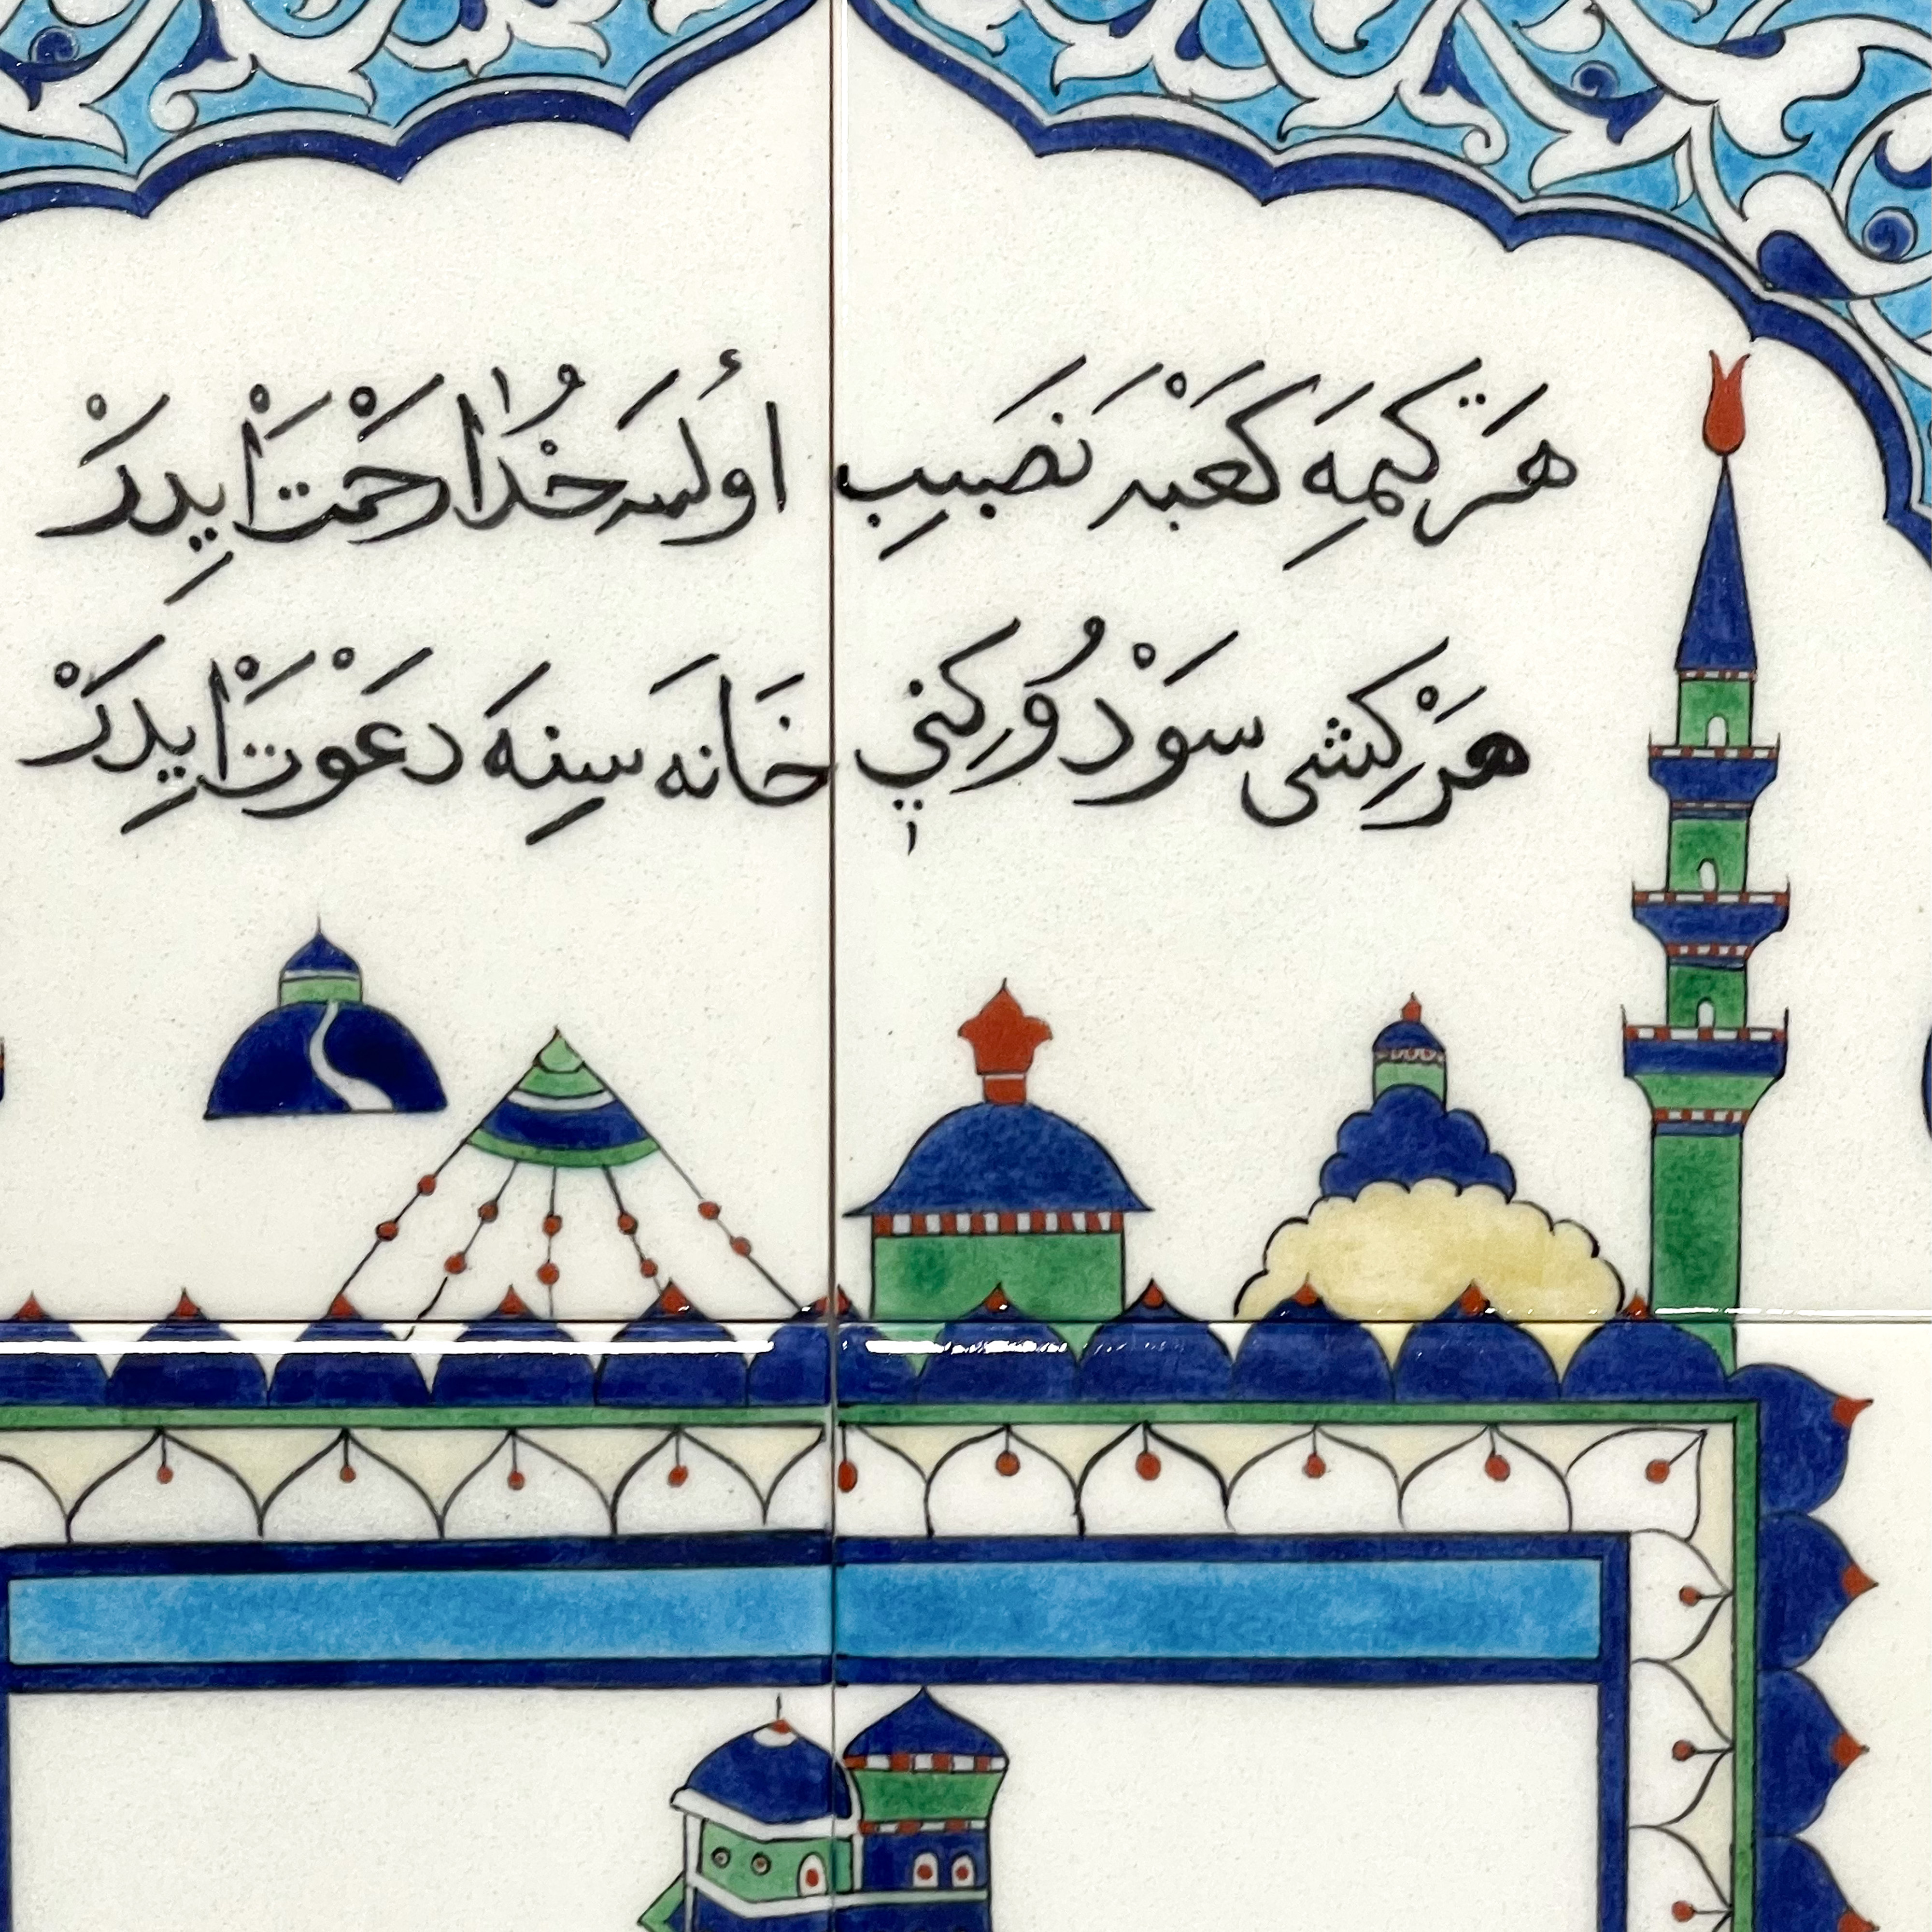 هَرْ كِمَهِ كَعْبَهْ نَصَبِيب اُولَسَه خُدَا رَحْمَتْ اِيدَرْ
هَرْ كِشِى سَوْدُوكِنِي خَانَه سِنَه دَعْوَتْ اِيدَرْ